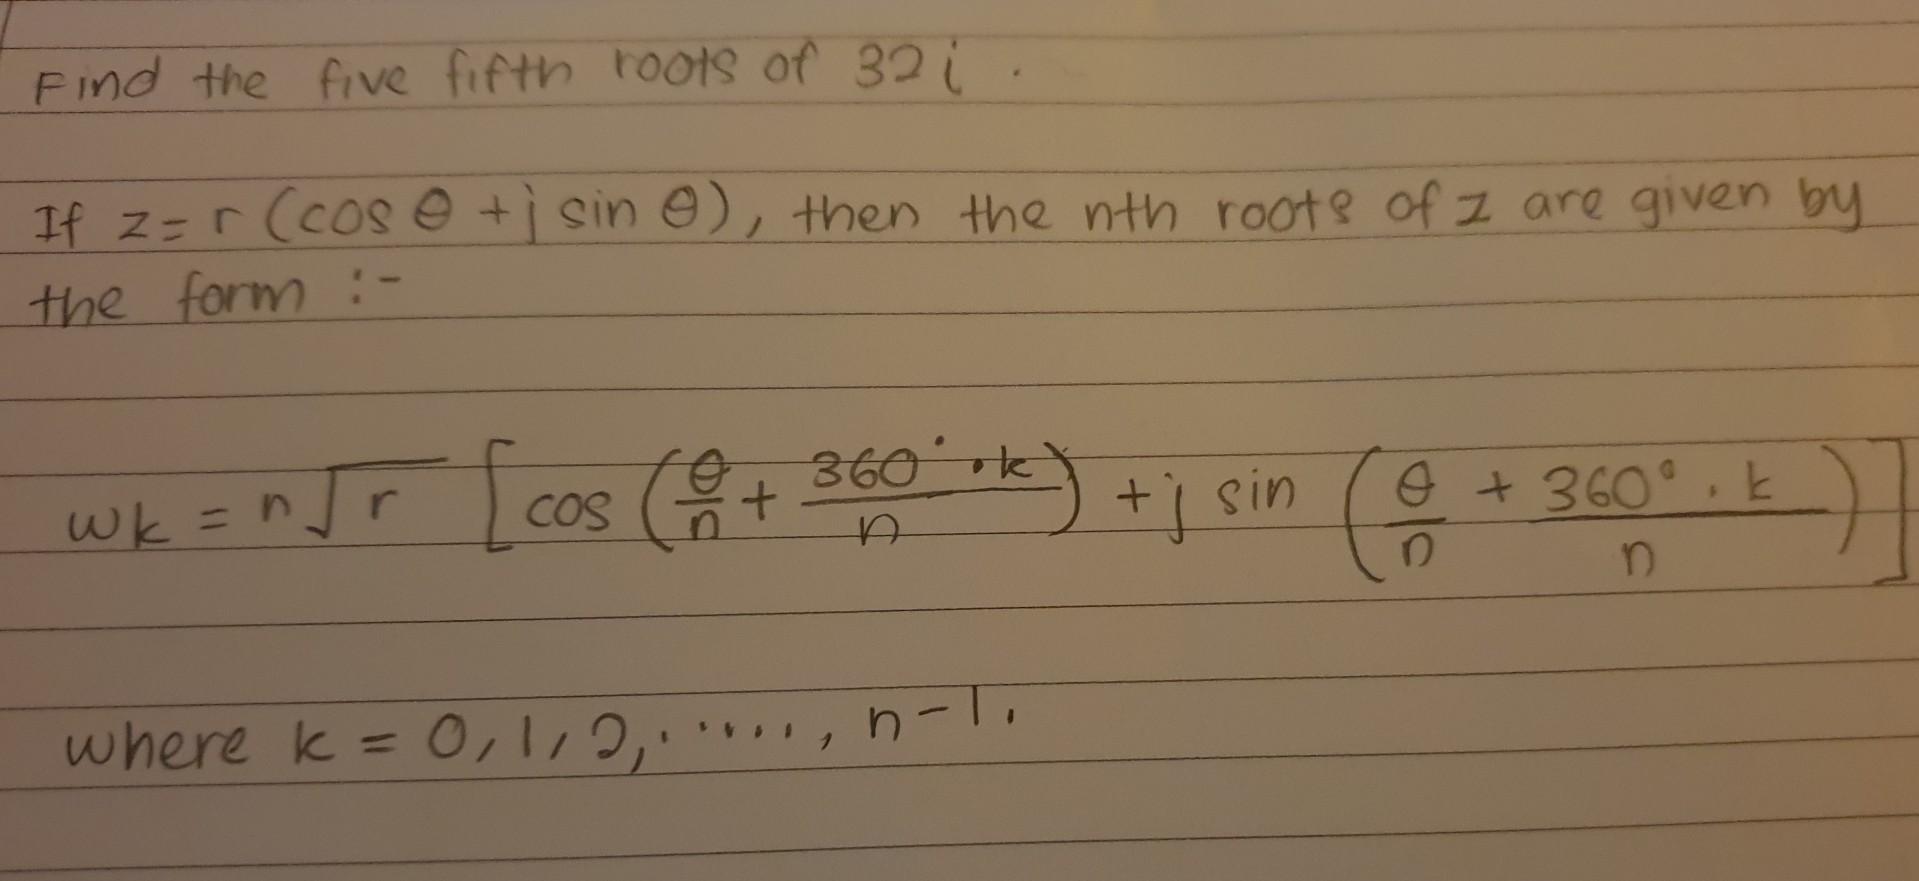 Find the five fifth roots of 32i.
If z = r (cos θ + j sin θ), then the nth roots of z are given by
the form :-
wk = n√r [cos (θ/n + 360°.k/n) + j sin (θ/n + 360°.k/n)]
where k = 0,1,2,......, n-1.